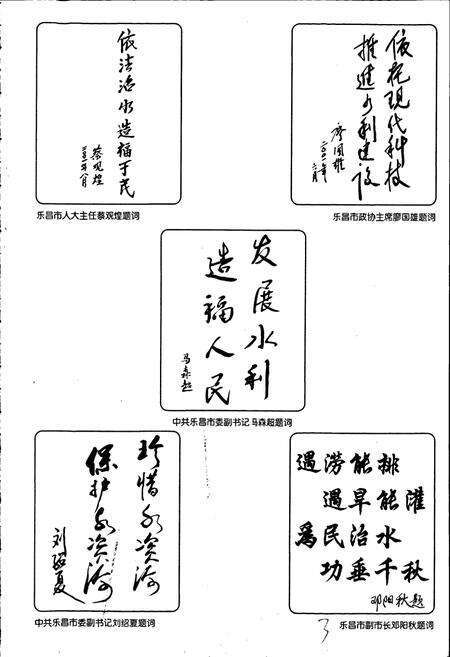 依法治水造福于民
蔡观煌
乐昌市人大主任蔡观煌题词
依托现代科技
推进水利建设
廖国雄
乐昌市政协主席廖国雄题词
发展水利
造福人民
马森超
中共乐昌市委副书记马森超题词
珍惜水资源
保护水资源
刘绍夏
中共乐昌市委副书记刘绍夏题词
遇涝能排
遇旱能灌
爲民治水
功垂千秋
邓阳秋题
乐昌市副市长邓阳秋题词
3